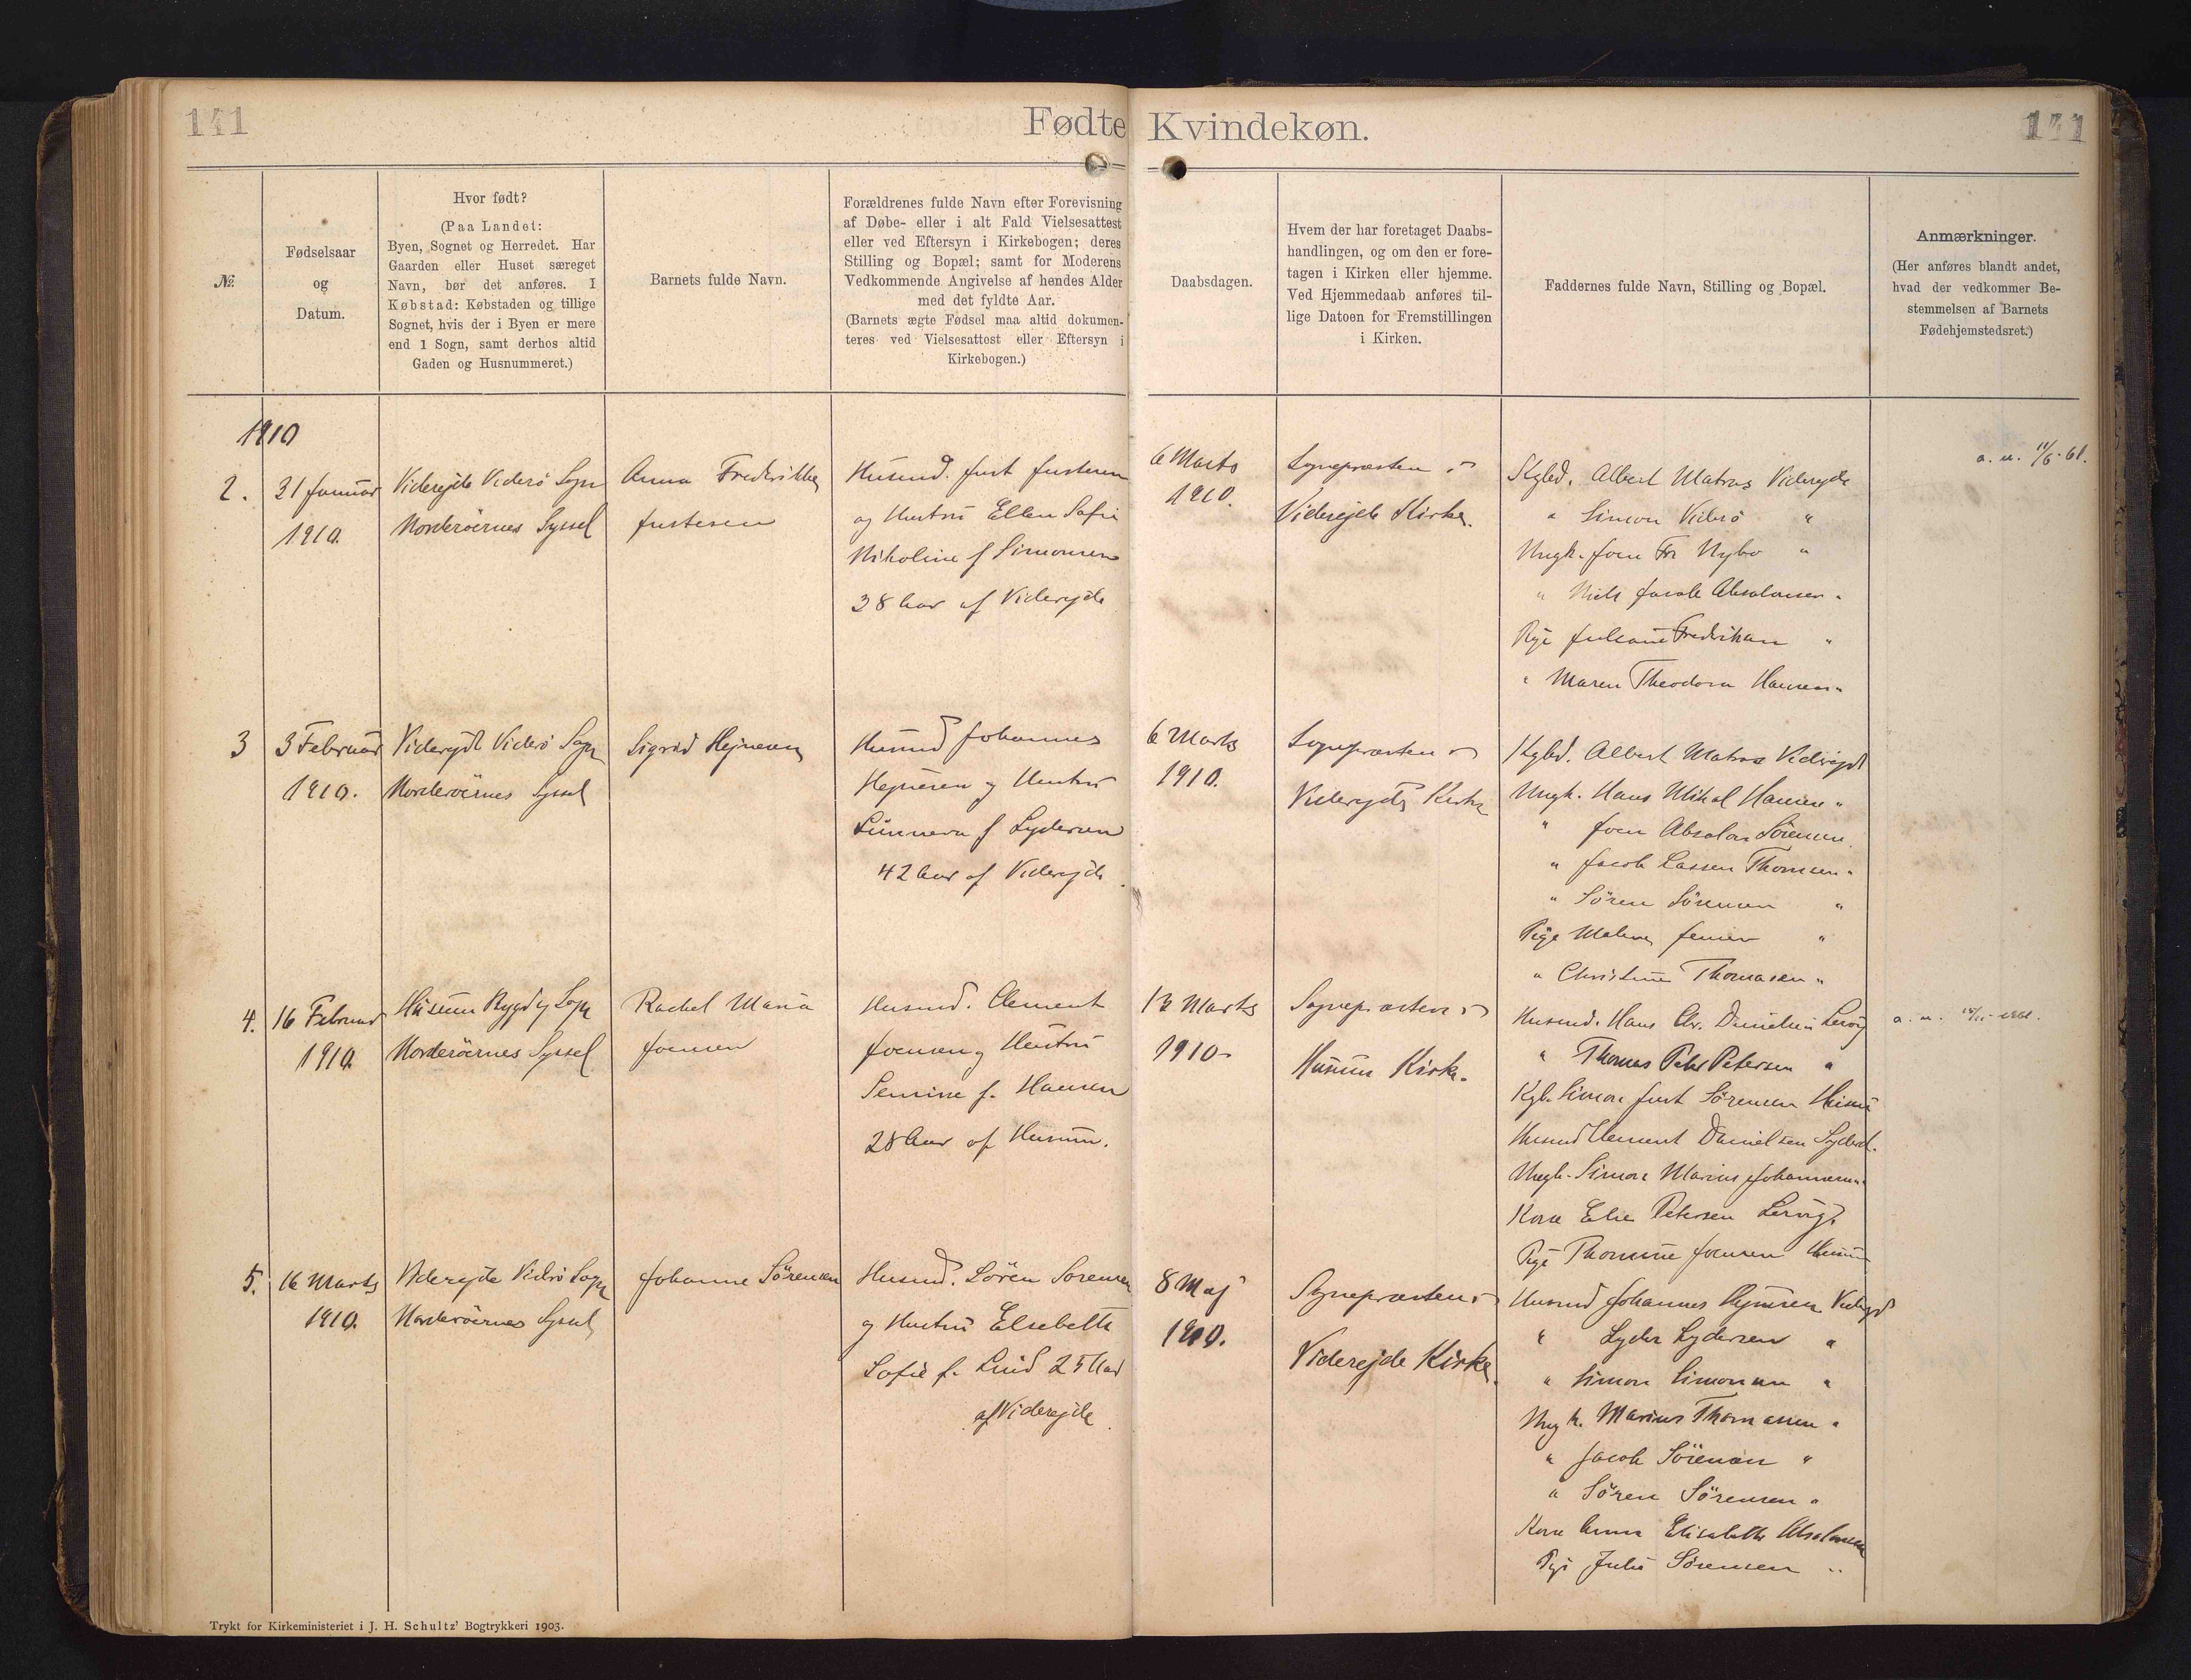 141
Fødte Kvindekøn.
141
№
Fødselsaar
og
Datum.
Hvor født?
(Paa Landet:
Byen, Sognet og Herredet. Har
Gaarden eller Huset særeget
Navn, bør det anføres. I
Købstad: Købstaden og tillige
Sognet, hvis der i Byen er mere
end 1 Sogn, samt derhos altid
Gaden og Husnummeret.)
Barnets fulde Navn.
Forældrenes fulde Navn efter Forevisning
af Døbe- eller i alt Fald Vielsesattest
eller ved Eftersyn i Kirkebogen; deres
Stilling og Bopæl; samt for Moderens
Vedkommende Angivelse af hendes Alder
med det fyldte Aar.
(Barnets ægte Fødsel maa altid dokumen-
teres ved Vielsesattest eller Eftersyn i
Kirkebogen.)
Daabsdagen.
Hvem der har foretaget Daabs-
handlingen, og om den er fore-
tagen i Kirken eller hjemme.
Ved Hjemmedaab anføres til-
lige Datoen for Fremstillingen
i Kirken.
Faddernes fulde Navn, Stilling og Bopæl.
Anmærkninger.
(Her anføres blandt andet,
hvad der vedkommer Be-
stemmelsen af Barnets
Fødehjemstedsret.)
1910
2.
31 Januar
1910.
Viderejde Viderö Sogn
Norderöernes Syssel
Anna Fredrikke
Justesen
Husmd. Just Justesen
og Hustru Ellen Sofie
Nikoline f Simonsen
38 Aar af Viderejde
6 Marts
1910.
Sognepræsten i
Viderejde Kirke.
Kgbd. Albert Matras Viderejde
" Simon Viderö "
Ungk. Joen Fr Nybo "
" Niels Jacob Absalonsen "
Pige Fredriksen "
" Maren Theodora Hansen "
a. u. 11/6-61.
3
3 Februar
1910.
Viderejde Viderö Sogn
Norderöernes Syssel
Sigrid Hejnesen
Husmd Johannes
Hejnesen og Hustru
Sunneva f Lydersen
42 Aar af Viderejde.
6 Marts
1910.
Sognepræsten i
Viderejde Kirke
Kgbd. Albert Matras Viderejde
Ungk. Hans Mikal Hansen "
" Joen Absalon Sörensen
" Jacob Lassen Thomsen "
" Sören Sörensen "
Pige Jensen "
" Christine Thomasen "
4.
16 Februar
1910.
Husum Bygd Sogn
Norderöernes Syssel
Rachel Maria
Joensen
Husmd. Clement
Joensen og Hustru
Semine f. Hansen
28 Aar af Husum.
13 Marts
1910.
Sognepræsten i
Husum Kirke.
Husmd. Hans Chr. Danielsen Lervig
" Thomas Peter Petersen "
Kgb. Simon Just Sörensen Husum
Husmd Clement Danielsen Syderd.
Ungk. Simon Marius Johannesen "
Kone Else Petersen Lervig.
Pige Thomine Joensen Husum
a. u.
5.
16 Marts
1910.
Viderejde Viderö Sogn
Norderöernes Syssel
Johanne Sörensen
Husmd. Sören Sorensen
og Hustru Elsebeth
Sofie f. Lind 25 Aar
af Viderejde.
8 Maj
1910.
Sognepræsten i
Viderejde Kirke.
Husmd Johannes Hejnesen Viderejd
" Lyder Lydersen "
" Simon Simonsen "
Ungk. Marius Thomasen "
" Jacob Sörensen "
" Sören Sörensen "
Kone Anna Elisabeth Absalonsen
Pige Julie Sörensen "
Trykt for Kirkeministeriet i J. H. Schultz' Bogtrykkeri 1903.